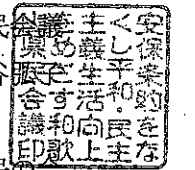 民会議
安保条約をな
くし平和・民主
主義生活向上
をめざす和歌
山県民会議印